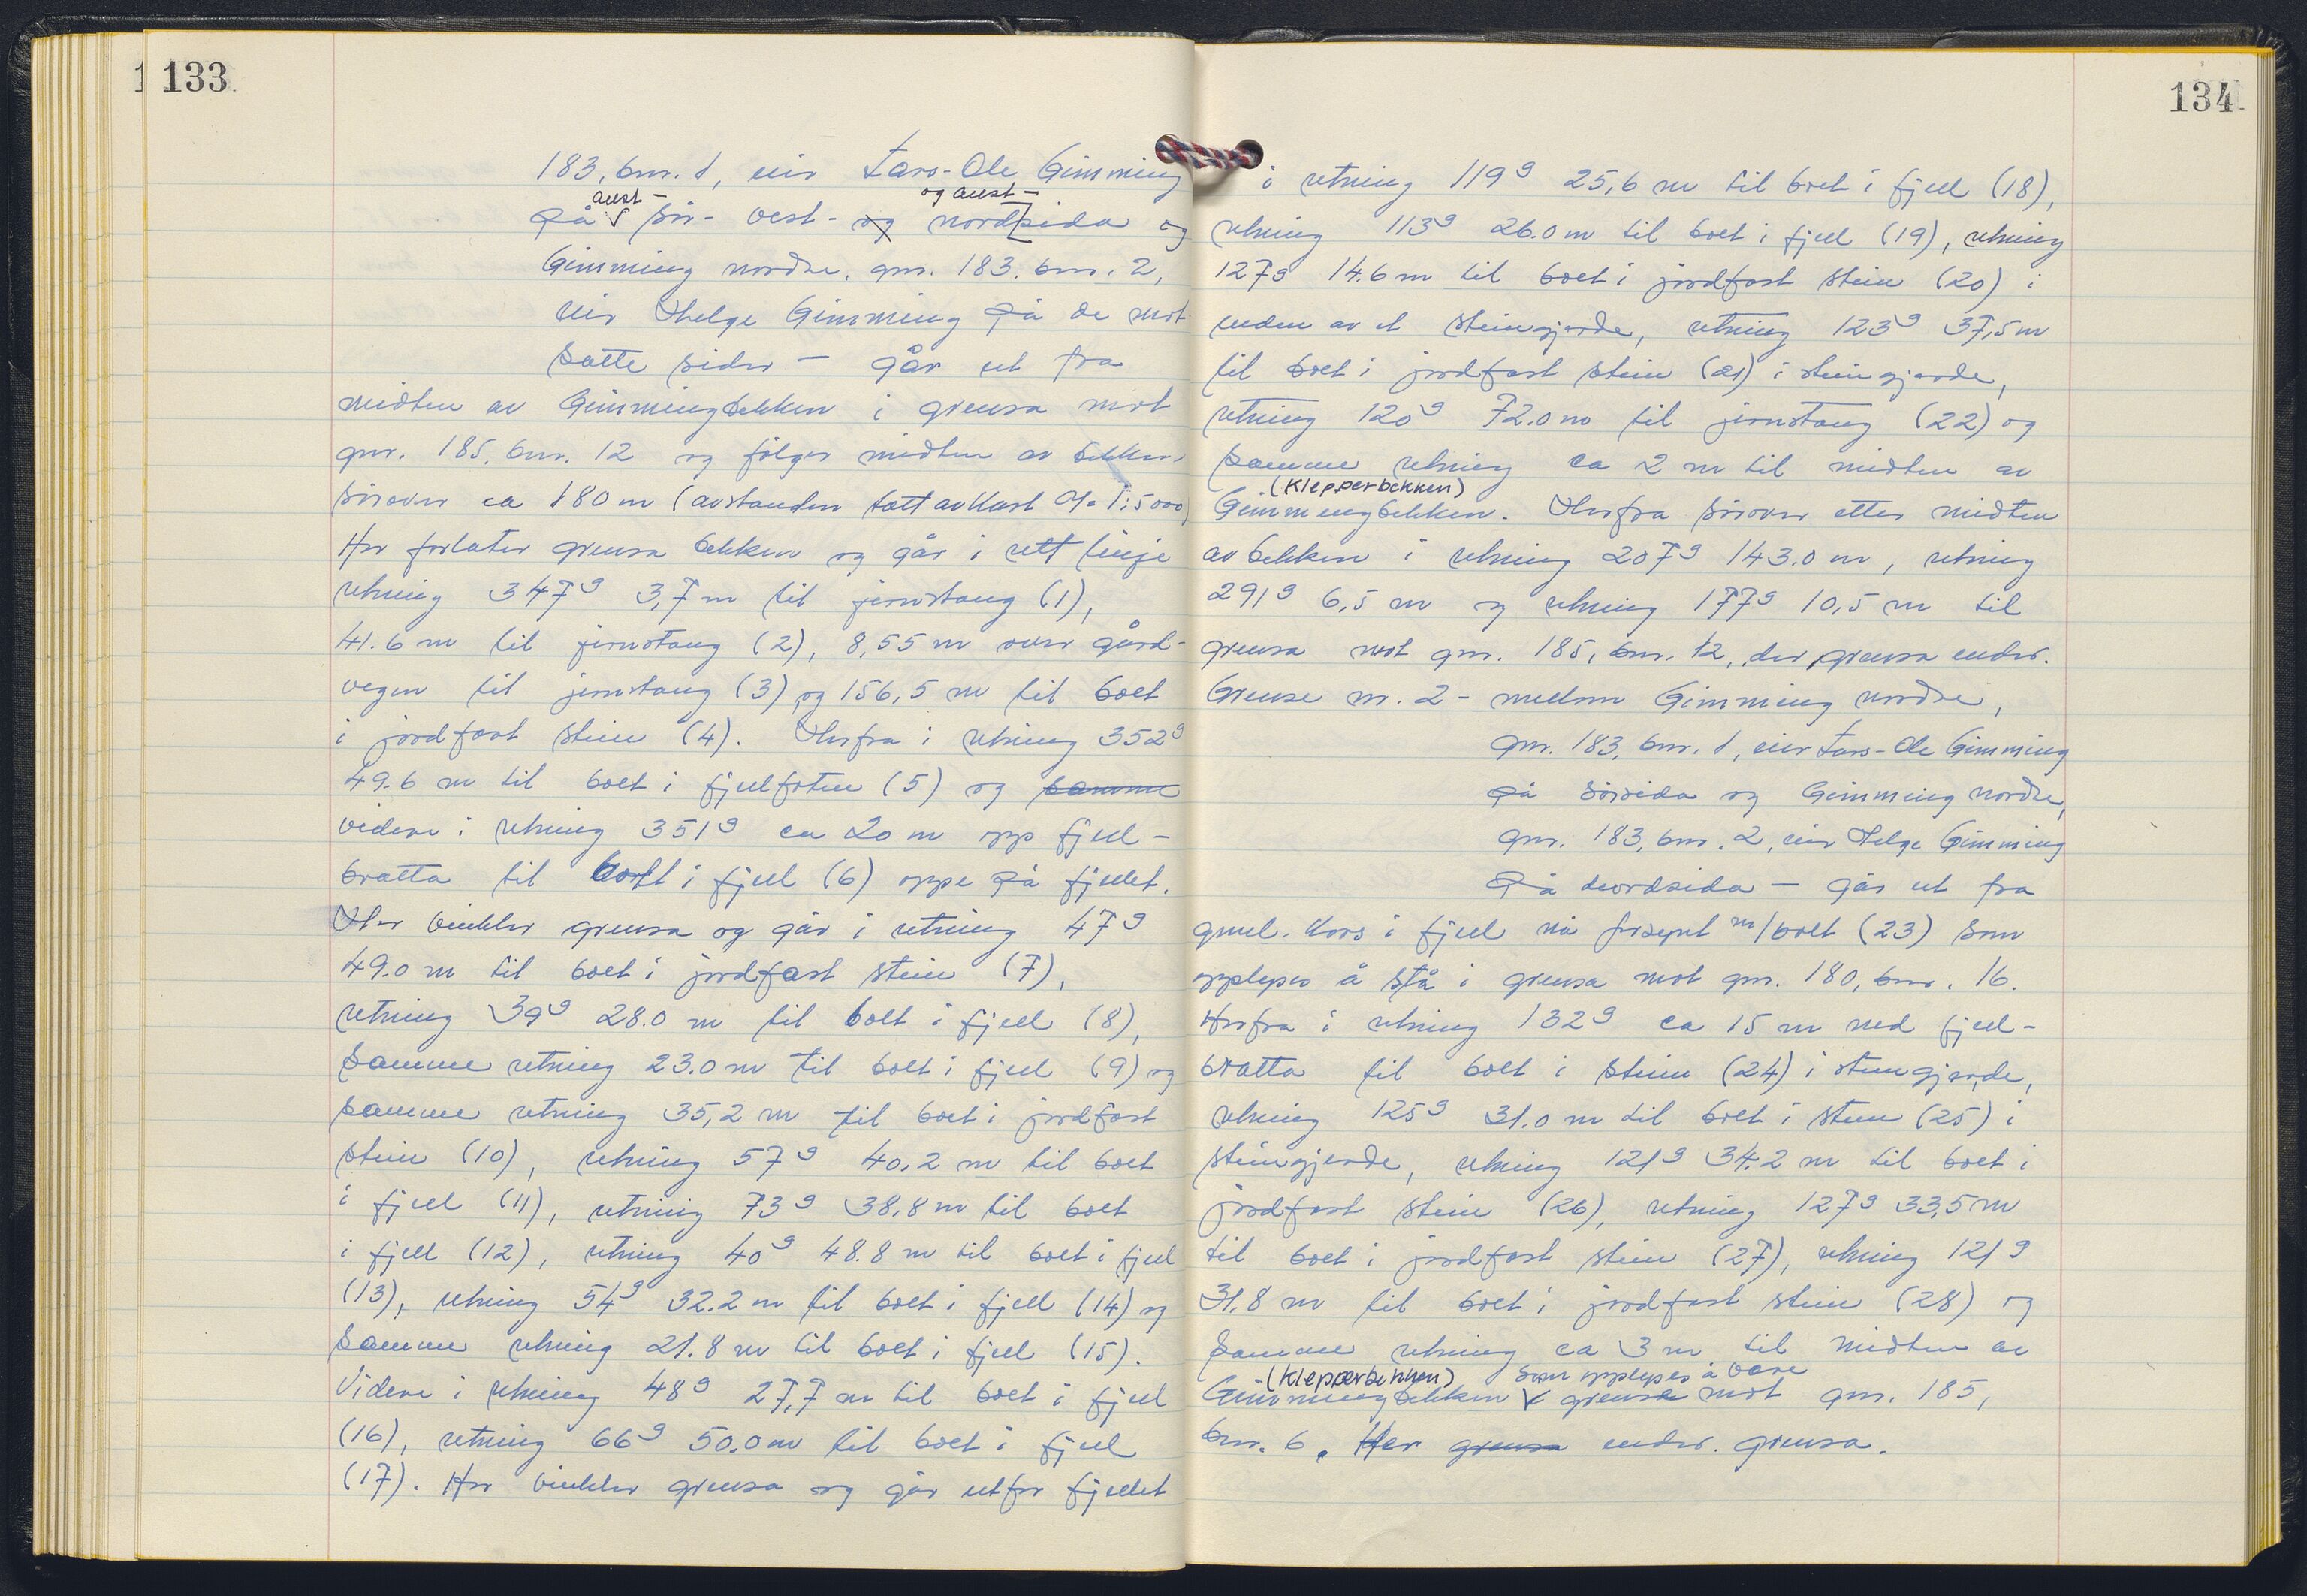 133
183, bnr. 1, eier Lars-Ole Gimming
aust- og aust-
på sør- vest- og nordsida og
Gimming nordre, gnr. 183, bnr. 2,
eier Helge Gimming på de mot-
satte sider - går ut fra
midten av Gimmingbekken i grensa mot
gnr. 185, bnr. 12 og følger midten av bekken
sørover ca 180 m (avstanden tatt av kart M= 1:5000)
Her forlater grensa bekken og går i rett linje
retning 347g 3,7 m til jernstang (1),
41.6 m til jernstang (2), 8,55 m over gård-
vegen til jernstang (3) og 156,5 m til bolt
i jordfast stein (4). Herfra i retning 352g
49.6 m til bolt i fjellfoten (5) og samme
videre i retning 351g ca 20 m opp fjell-
bratta til bolt i fjell (6) oppe på fjellet.
Her vinkler grensa og går i retning 47g
49.0 m til bolt i jordfast stein (7),
retning 39g 28.0 m til bolt i fjell (8),
samme retning 23.0 m til bolt i fjell (9) og
samme retning 35,2 m til bolt i jordfast
stein (10), retning 57g 40.2 m til bolt
i fjell (11), retning 73g 38,8 m til bolt
i fjell (12), retning 40g 48.8 m til bolt i fjell
(13), retning 54g 32.2 m til bolt i fjell (14) og
samme retning 21.8 m til bolt i fjell (15).
Videre i retning 48g 27,7 m til bolt i fjell
(16), retning 66g 50.0 m til bolt i fjell
(17). Her vinkler grensa og går utfor fjellet
134
i retning 119g 25,6 m til bolt i fjell (18),
retning 113g 26.0 m til bolt i fjell (19), retning
127g 14.6 m til bolt i jordfast stein (20) i
enden av et steingjerde, retning 123g 37,5 m
til bolt i jordfast stein (21) i steingjerde,
retning 120g 72.0 m til jernstang (22) og
samme retning ca 2 m til midten av
(Klepperbekken)
Gimmingbekken. Herfra sørover etter midten
av bekken i retning 207g 143.0 m, retning
291g 6,5 m og retning 177g 10,5 m til
grensa mot gnr. 185, bnr. 12, der grensa ender.
Grense nr. 2 - mellom Gimming nordre,
gnr. 183, bnr. 1, eier Lars-Ole Gimming
på sørsida og Gimming nordre,
gnr. 183, bnr. 2, eier Helge Gimming
på nordsida - går ut fra
gml. kors i fjell nå forsynt m/bolt (23) som
opplyses å stå i grensa mot gnr. 180, bnr. 16.
Herfra i retning 132g ca 15 m ned fjell-
bratta til bolt i stein (24) i steingjerde,
retning 125g 31.0 m til bolt i stein (25) i
steingjerde, retning 121g 34.2 m til bolt i
jordfast stein (26), retning 127g 33,5 m
til bolt i jordfast stein (27), retning 121g
31,8 m til bolt i jordfast stein (28) og
samme retning ca 3 m til midten av
(Klepperbekken) som opplyses å være
Gimmingbekken grense mot gnr. 185,
bnr. 6. Her grensa ender. grensa.